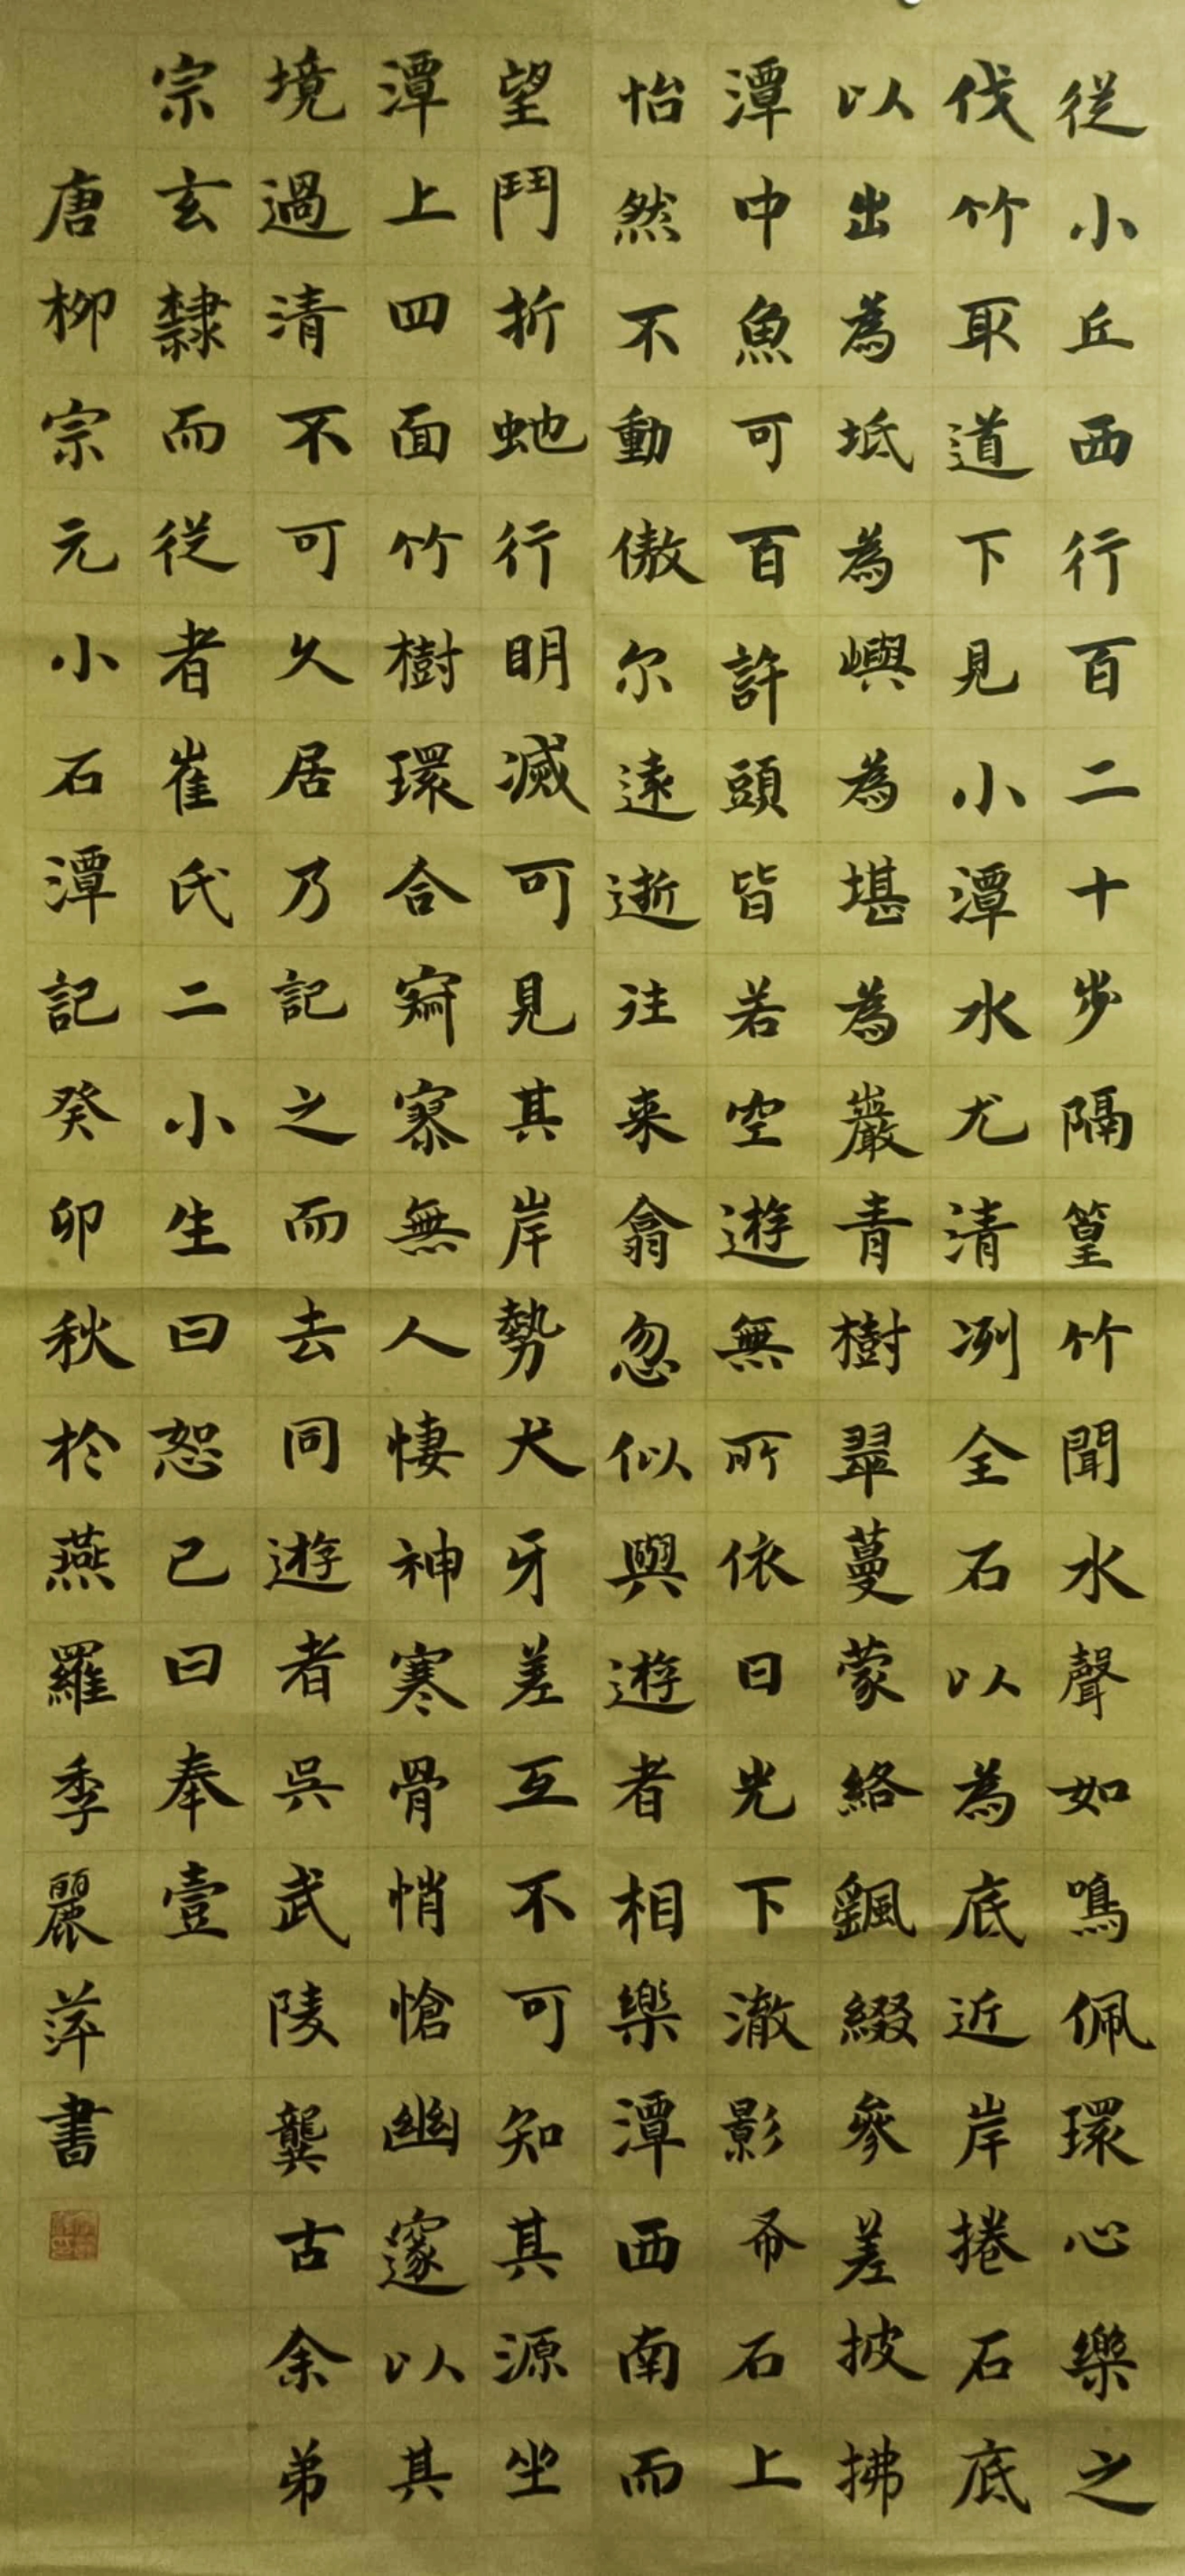 從小丘西行百二十步隔篁竹聞水聲如鳴佩環心樂之
伐竹取道下見小潭水尤清冽全石以為底近岸捲石底
以出為坻為嶼為堪為巖青樹翠蔓蒙絡飄綴參差披拂
潭中魚可百許頭皆若空遊無所依日光下澈影布石上
怡然不動俶尔遠逝往来翕忽似與遊者相樂潭西南而
望鬥折虵行明滅可見其岸勢犬牙差互不可知其源坐
潭上四面竹樹環合寂寥無人悽神寒骨悄愴幽邃以其
境過清不可久居乃記之而去同遊者吳武陵龔古余弟
宗玄隸而從者崔氏二小生曰恕己曰奉壹
唐柳宗元小石潭記癸卯秋於燕羅季麗萍書